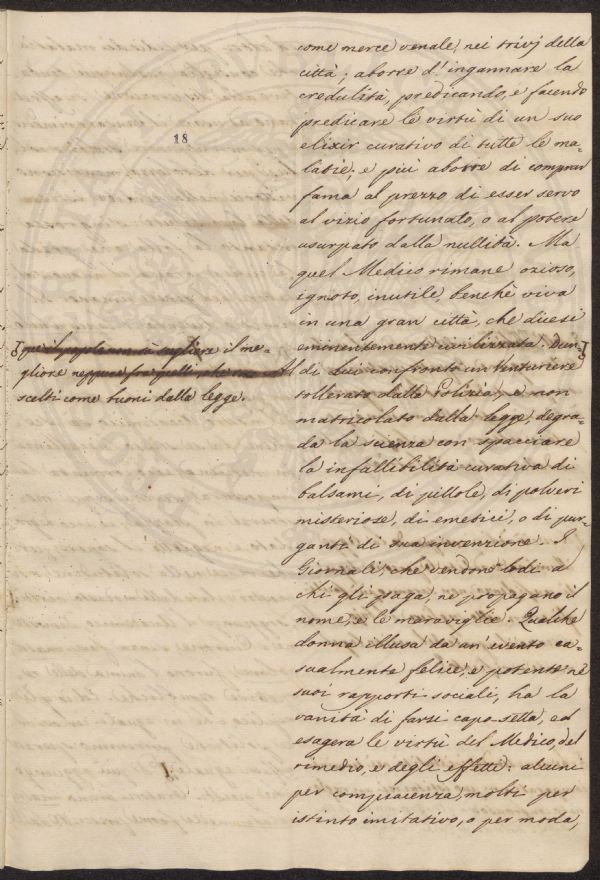 18
come merce venale, nei trivj della
città; aborre d'ingannare la
credulità, predicando, e facendo
predicare le virtù di un suo
elixir curativo di tutte le ma-
latie; e più aborre di comprar
fama al prezzo di esser servo
al vizio fortunato, o al potere
usurpato dalla nullità. Ma
quel Medico rimane ozioso,
ignoto, inutile, benchè viva
in una gran città, che dicesi
eminentemente civilizzata.
di lui confronto un
tollerato dalla Polizia, e non
matricolato dalla legge, degra-
da la scienza con spacciare
la infallibilità curativa di
balsami, di pillole, di polveri
misteriose, di emetici, o di pur-
ganti di sua invenzione. I
Giornali, che vendono lodi a
chi gli paga, ne propagano il
nome, e le maraviglie. Qualche
donna illusa da un'evento ca-
sualmente felice, e potente ne'
suoi rapporti sociali, ha la
vanità di farsi capo-setta, ed
esagera le virtù del Medico, del
rimedio, e degli effetti: alcuni
per compiacenza, molti per
istinto imitativo, o per moda,
il me-
gliore
scelti come buoni dalla legge.